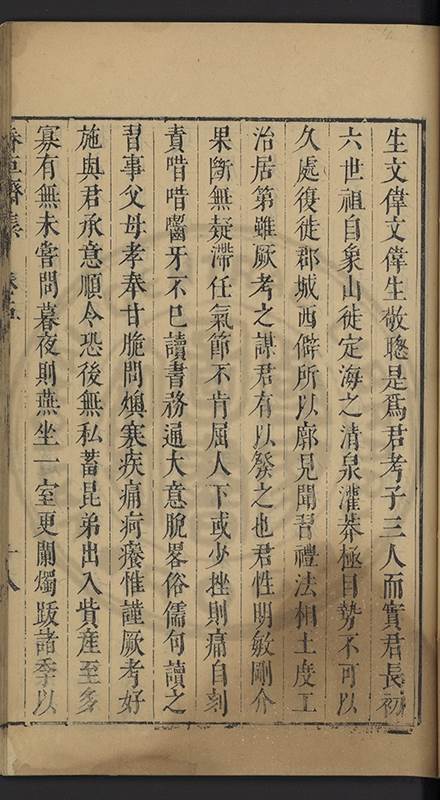 生文偉文偉生敬聰是爲君考子三人而實君長初
六世祖自象山徙定海之清泉灌莽極目勢不可以
久處復徙郡城西僻所以廓見聞習禮法相土度工
治居第雖厥考之謀君有以發之也君性明敏剛介
果斷無疑滯任氣節不肯屈人下或少挫則痛自刻
責唶唶嚙牙不已讀書務通大意脫畧俗儒句讀之
習事父母孝奉甘脆問燠寒疾痛疴癢惟謹厥考好
施與君承意順令恐後無私蓄昆弟出入貲產至多
寡有無未嘗問暮夜則燕坐一室更闌燭跋諸季以
春
齋集
卷